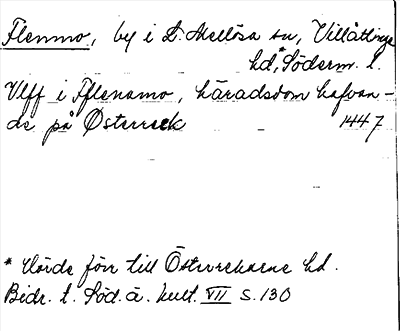 Flenmo, by i St. Mellösa sn, Villåttinge
hd,* Söderm. l.
Ulff i Fflenamo, häradsdom hafvan-
de på Østerrek 1447
* Hörde förr till Österrekarne hd.
Bidr. t. Söd. ä. kult. VII s. 130